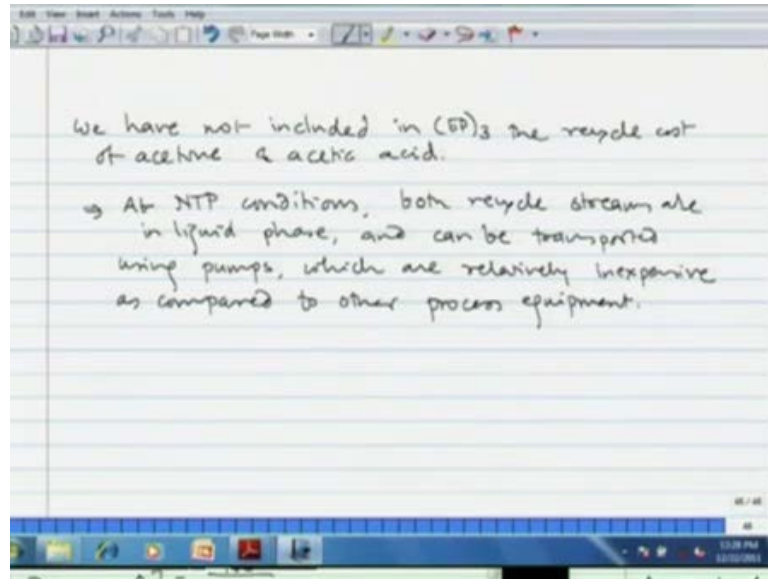 Edit View Insert Actions Tools Help
Page Width
We have not included in (EP)3 the recycle cost
of acetone & acetic acid.
→ At NTP conditions, both recycle stream are
in liquid phase, and can be transported
using pumps, which are relatively inexpensive
as compared to other process equipment.
12:28 PM